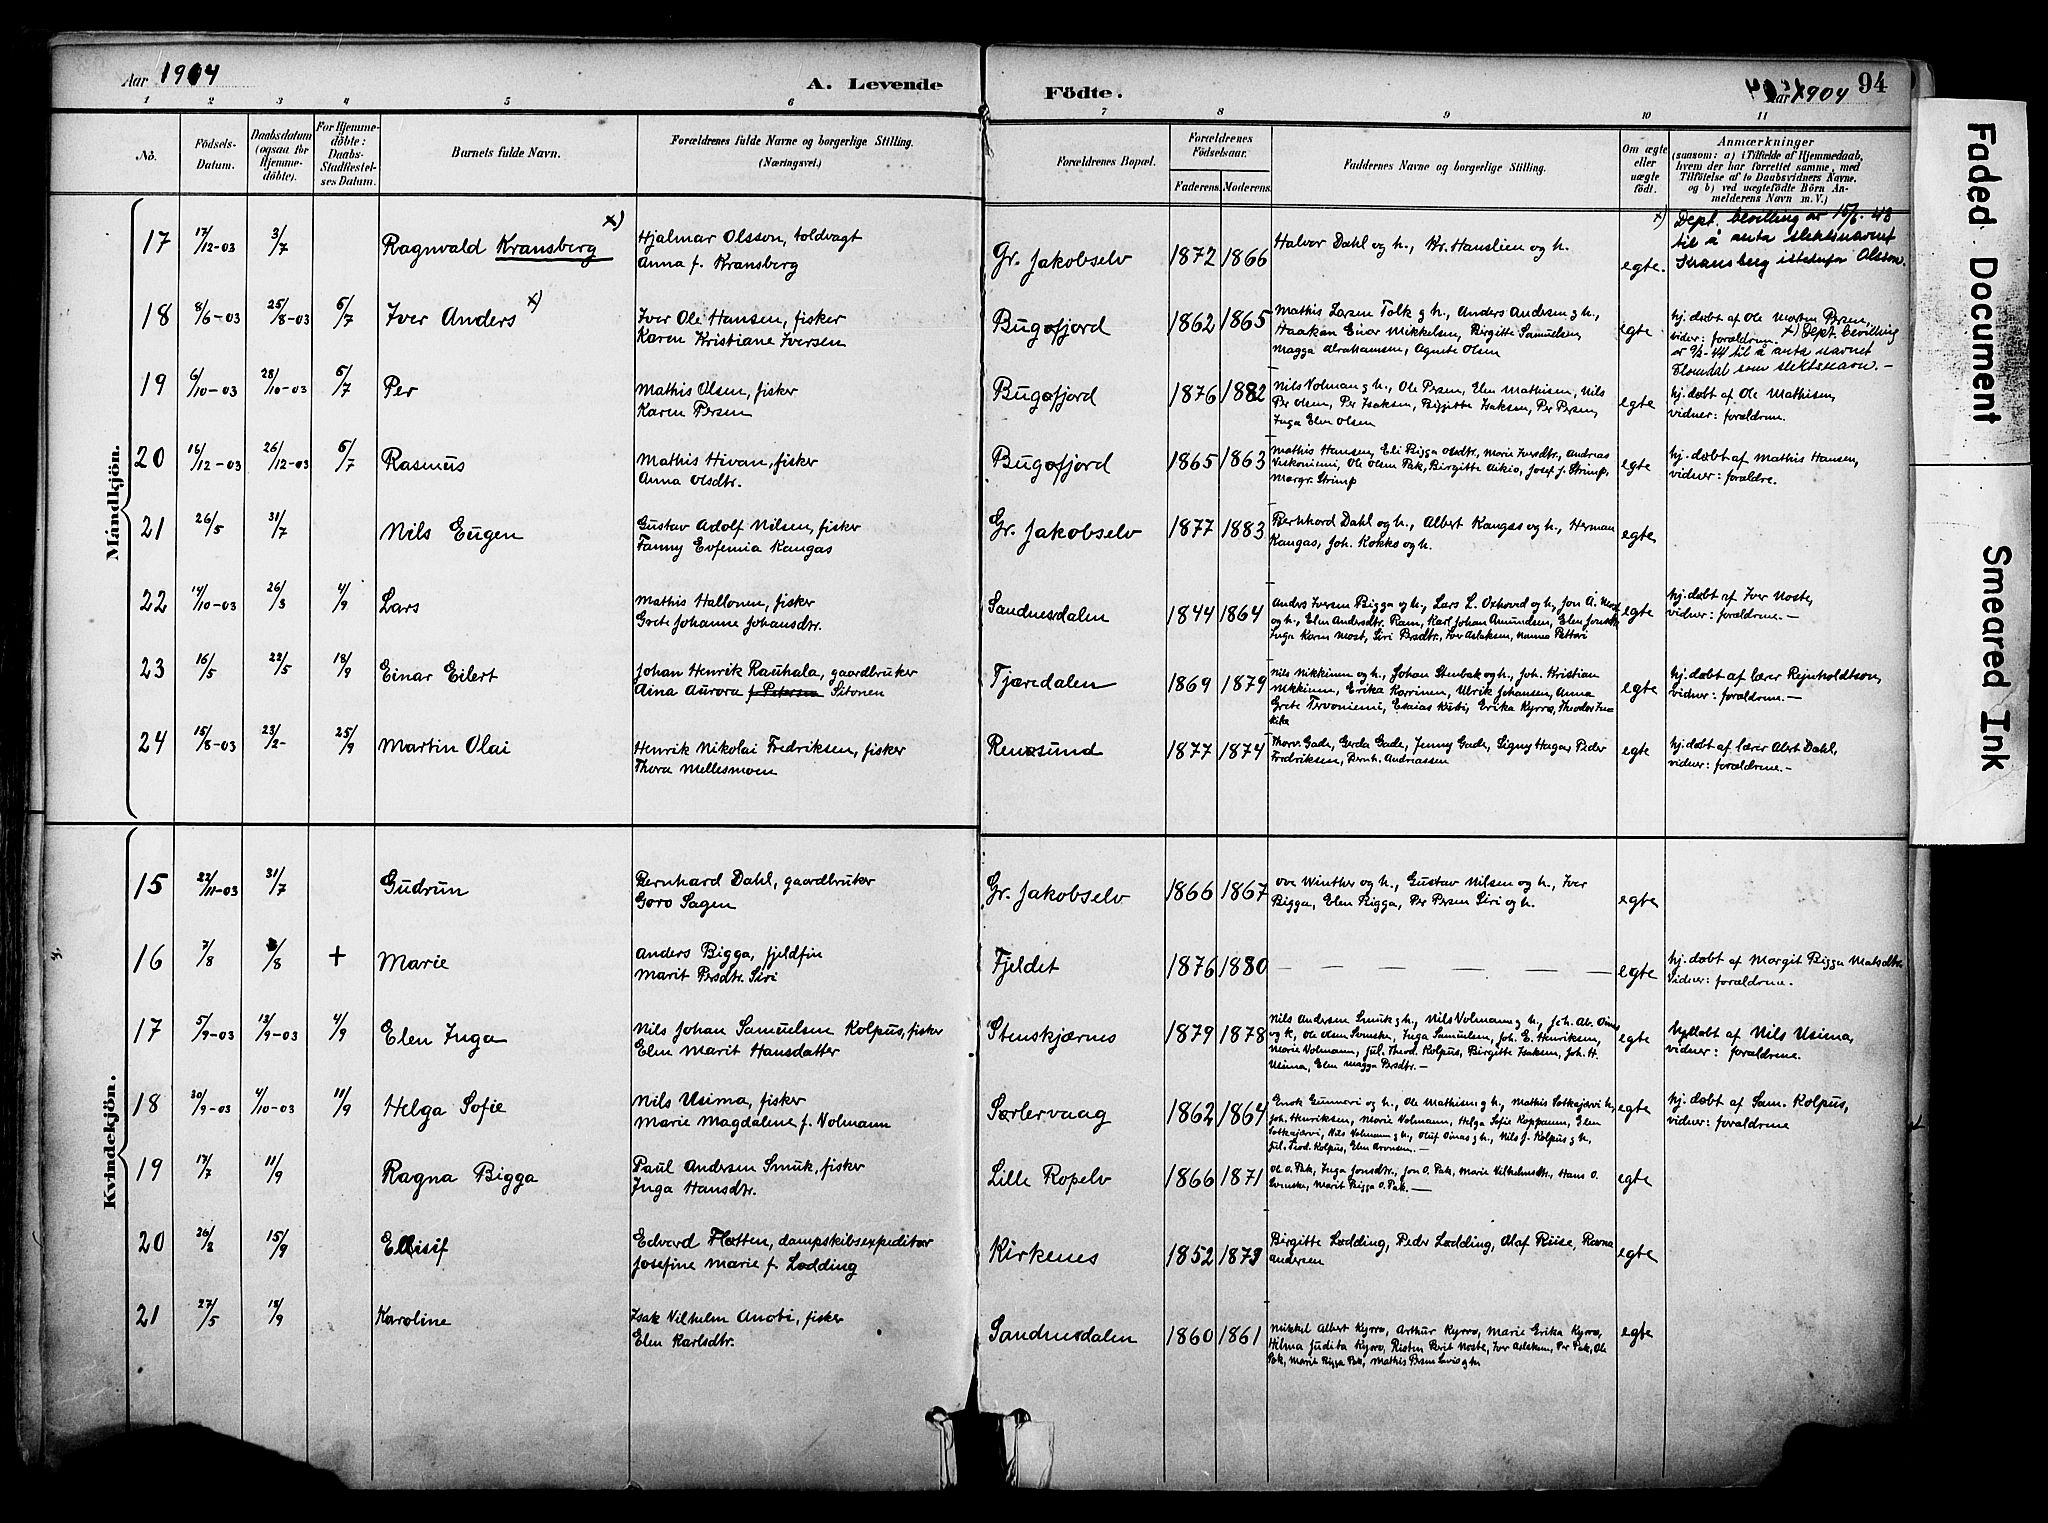 Aar 1904
A. Levende
Födte.
Aar 1904
94
1 2 3 4 5 6 7 8 9 10 11
No.
Födsels-
Datum.
Daabsdatum
(ogsaa for
Hjemme-
döbte).
For Hjemme-
döbte:
Daabs-
Stadfæstel-
ses Datum.
Barnets fulde Navn.
Forældrenes fulde Navne og borgerlige Stilling.
(Næringsvei.)
Forældrenes Bopæl.
Forældrenes
Födselsaar.
Faderens. Moderens.
Faddernes Navne og borgerlige Stilling.
Om ægte
eller
uægte
födt.
Anmærkninger
(saasom: a) i Tilfælde af Hjemmedaab,
hvem der har forrettet samme, med
Tilföielse af to Daabsvidners Navne.
og b) ved uægtefödte Börn An-
melderens Navn m. V.)
Mandkjön.
17 17/12-03 3/7 Ragnvald Kransberg x)
Hjalmar Olsson, toldvagt
Anna f. Kransberg
Gr. Jakobselv 1872 1866
Halvor Dahl og h., Kr. Hanslien og h.
egte.
x) Dept. bevilling av 15/6-43
til å anta slektsnavnet
Kransberg istedenfor Olsson.
18 8/6-03 25/8-03 5/7 Iver Anders x)
Iver Ole Hansen, fisker
Karen Kristiane Iversen
Bugøfjord 1862 1865
Mathis Larsen Tolk g h., Anders Andersen g h.,
Haakan Einar Mikkelsen, Birgitte Samuelsen,
Magga Abrahamsen, Agnete Olsen
egte
hj. døbt af Ole Morten Persen,
vidner: forældrene. x) Dept. bevilling
av 9/2-44 til å anta navnet
Elvendal som slektsnavn.-
19 6/10-03 28/10-03 5/7 Per
Mathis Olsen, fisker
Karen Persen
Bugøfjord 1876 1882
Nils Volman g h., Ole Persen, Elen Mathisen, Nils
Per Olsen, Per Isaksen, Biggitte Isaksen, Per Persen,
Inga Elen Olsen
egte
hj. døbt af Ole Mathisen,
vidner: forældrene.
20 16/12-03 26/12-03 5/7 Rasmus
Mathis Hivan, fisker
Anna Olsdtr.
Bugøfjord 1865 1863
Mathis Hansen, Eli Bigga Olsdtr., Marie Iversdtr., Andreas
Viskoniemi, Ole Olsen Pak, Birgitte Aikio, Josef J. Strimp,
Margr. Strimp
egte
hj. døbt af Mathis Hansen,
vidner: forældre.
21 26/5 31/7 Nils Eugen
Gustav Adolf Nilsen, fisker
Fanny Eufemia Kangas
Gr. Jakobselv 1877 1883
Bernhard Dahl og h., Albert Kangas og h., Herman
Kangas, Joh. Kokko og h.
egte
22 14/10-03 26/3 4/9 Lars
Mathis Hallonen, fisker
Grete Johanne Johansdtr.
Sandnesdalen 1844 1864
Anders Iversen Bigga og h., Lars L. Oxhoved og h., Jon A.
og h., Elen Andersdtr. Ram, Karl Johan Amundsen, Elen
Inga Karen Most, Siri Persdtr., Iver Aslaksen, Hanna Pettari
egte
hj. døbt af Iver Noste,
vidner: forældrene.-
23 16/5 22/5 18/9 Einar Eilert
Johan Henrik Rauhala, gaardbruker
Aina Aurora f. Petersen Sitonen
Tjæredalen 1869 1879
Nils Nikkinen og h., Johan Stenbak og h., Joh. Kristian
Nikkinen, Erika Karrinen, Ulrik Johansen, Anna
Grete Tervoniemi, Esaias Kisti, Erika Kyrrø, Theodor
egte
hj. døbt af lærer Rejnholdtson,
vidner: forældrene.-
24 15/8-03 23/2- 25/9 Martin Olai
Henrik Nikolai Fredriksen, fisker
Thora Mellesmoen
Renøsund 1877 1874
Thorv. Gade, Gerda Gade, Jenny Gade, Signy Hagar, Peder
Fredriksen, Bernh. Andreassen
egte
hj. døbt af lærer Albert Dahl,
vidner: forældrene.-
Kvindekjön.
15 22/11-03 31/7 Gudrun
Bernhard Dahl, gaardbruker
Goro Sagen
Gr. Jakobselv 1866 1867
Ove Winther og h., Gustav Nilsen og h., Iver
Bigga, Elen Bigga, Per Persen Siri og h.
egte
16 7/8 /8 + Marie
Anders Bigga, fjeldfin
Marit Persdtr. Siri
Fjeldet 1876 1880
— — — — — —
egte
hj. døbt af Margit Bigga Matsdtr.
Vidner: forældrene.
17 5/9-03 13/9-03 4/9 Elen Inga
Nils Johan Samuelsen Kolpus, fisker
Elen Marit Hansdatter
Stenskjærnes 1879 1878
Nils Andersen Smuk g h., Nils Volmann g h., Joh. Ab. Oinas
og h., Ole Olsen Svenske, Inga Samuelsen, Joh. E. Henriksen,
Marie Volmann, Jul. Theod. Kolpus, Birgitte Isaksen, Joh. H.
Usima, Elen Magga Persdtr.-
egte
hj. døbt af Nils Usima,
vidner: forældrene.
18 20/9-03 4/10-03 11/9 Helga Sofie
Nils Usima, fisker
Marie Magdalene f. Volmann
Særlervaag 1862 1864
Enok Gunnari og h., Ole Mathisen g h., Mathis Sotkajærvi h.,
Joh. Henriksen, Marie Volmann, Helga Sofie Koppanen, Elen
Sotkajærvi, Nils Volmann g h., Oluf Oinas g h., Nils J. Kolpus g h.,
Jul. Teod. Kolpus, Elen Aronsen.-
egte
hj. døbt af Sam. Kolpus,
vidner: forældrene
19 17/7 11/9 Ragna Bigga
Paul Andersen Smuk, fisker
Inga Hansdtr.
Lille Ropelv 1866 1871
Ole O. Pak, Inga Jonsdtr., Jon O. Pak, Marie Vilhelmsdtr., Hans O.
Svenske, Marit Bigga O. Pak.-
egte
20 26/3 15/9 Ellisif
Edvard Flotten, dampskibsexpeditør
Josefine Marie f. Lødding
Kirkenes 1852 1873
Birgitte Lødding, Peder Lødding, Olaf Riise, Ravna
Andersen
egte
21 27/5 18/9 Karoline
Isak Vilhelm Anobi, fisker
Elen Karlsdtr.
Sandnesdalen 1860 1861
Mikkil Albert Kyrrø, Arthur Kyrrø, Marie Erika Kyrrø,
Hilma Judita Kyrrø, Kisten Berit Noste, Iver Aslaksen, Per Pak, Ole
Pak, Marit Bigga Pak, Mathis Persen Savio g h.
egte
Faded Document
Smeared Ink